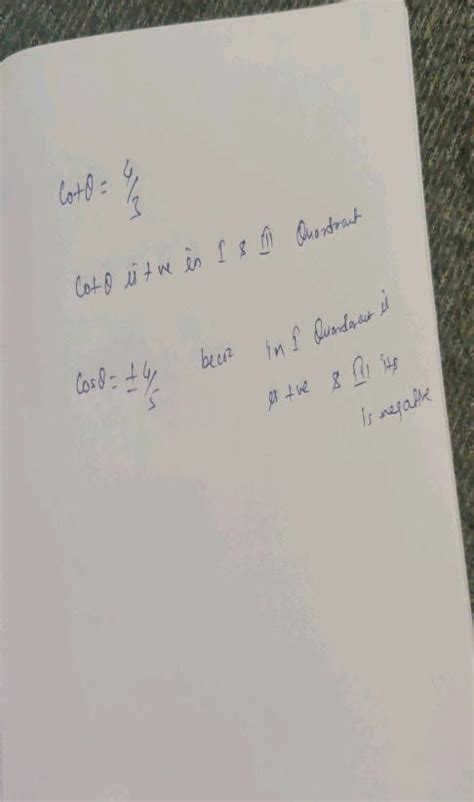 Cotθ = 4/3
Cotθ is +ve in I & III Quadrant
Cosθ = ± 4/5 becoz in I Quadrant it
is +ve & III its
is negative